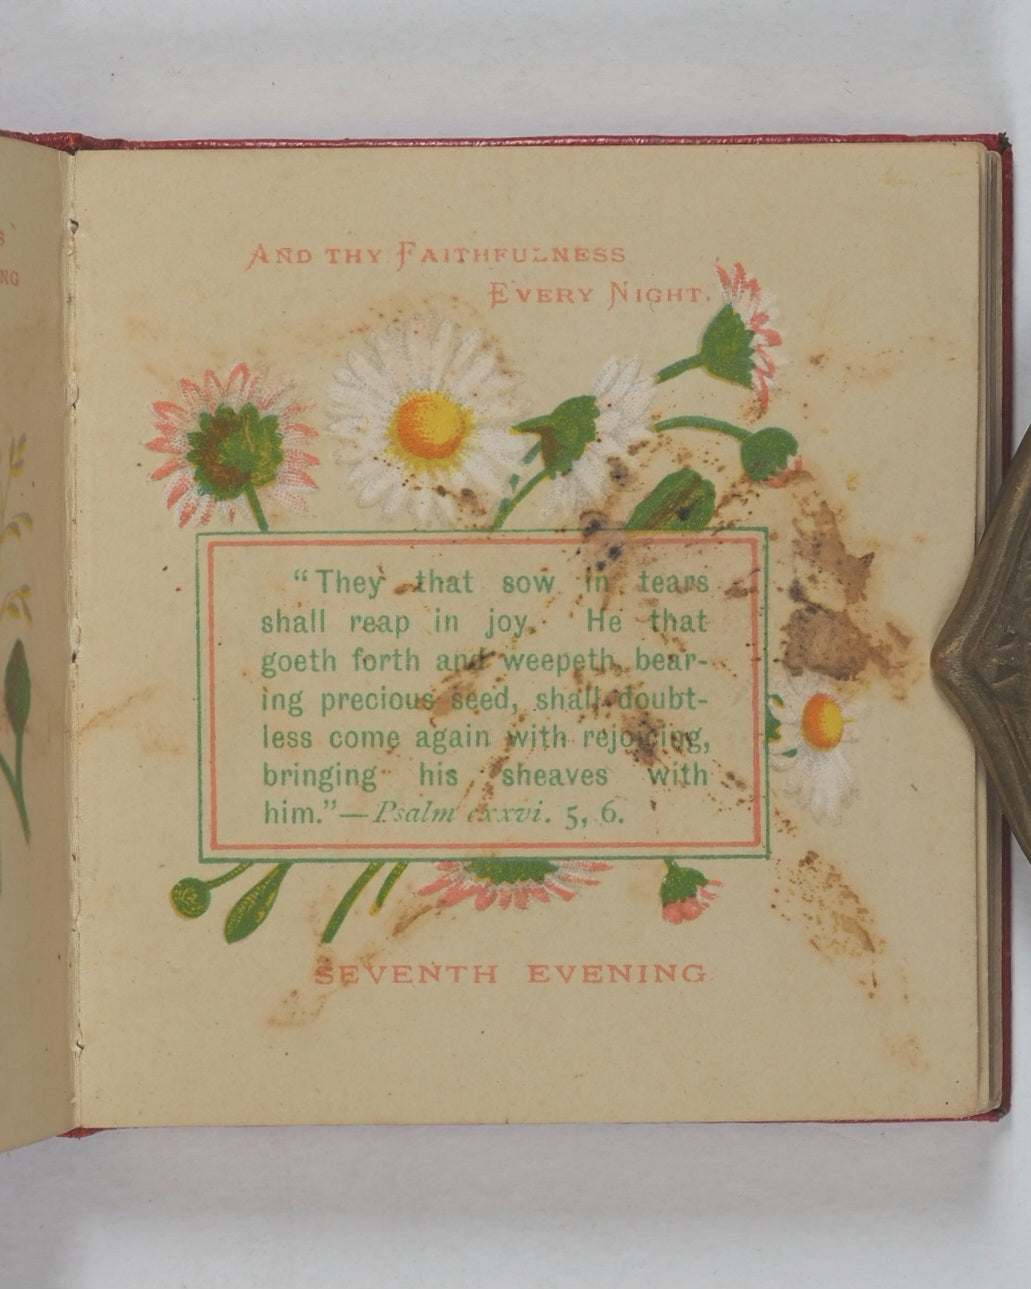 S
NG
And thy Faithfulness
Every Night.
“They that sow in tears
shall reap in joy. He that
goeth forth and weepeth, bear-
ing precious seed, shall doubt-
less come again with rejoicing,
bringing his sheaves with
him.”—Psalm cxxvi. 5, 6.
SEVENTH EVENING.